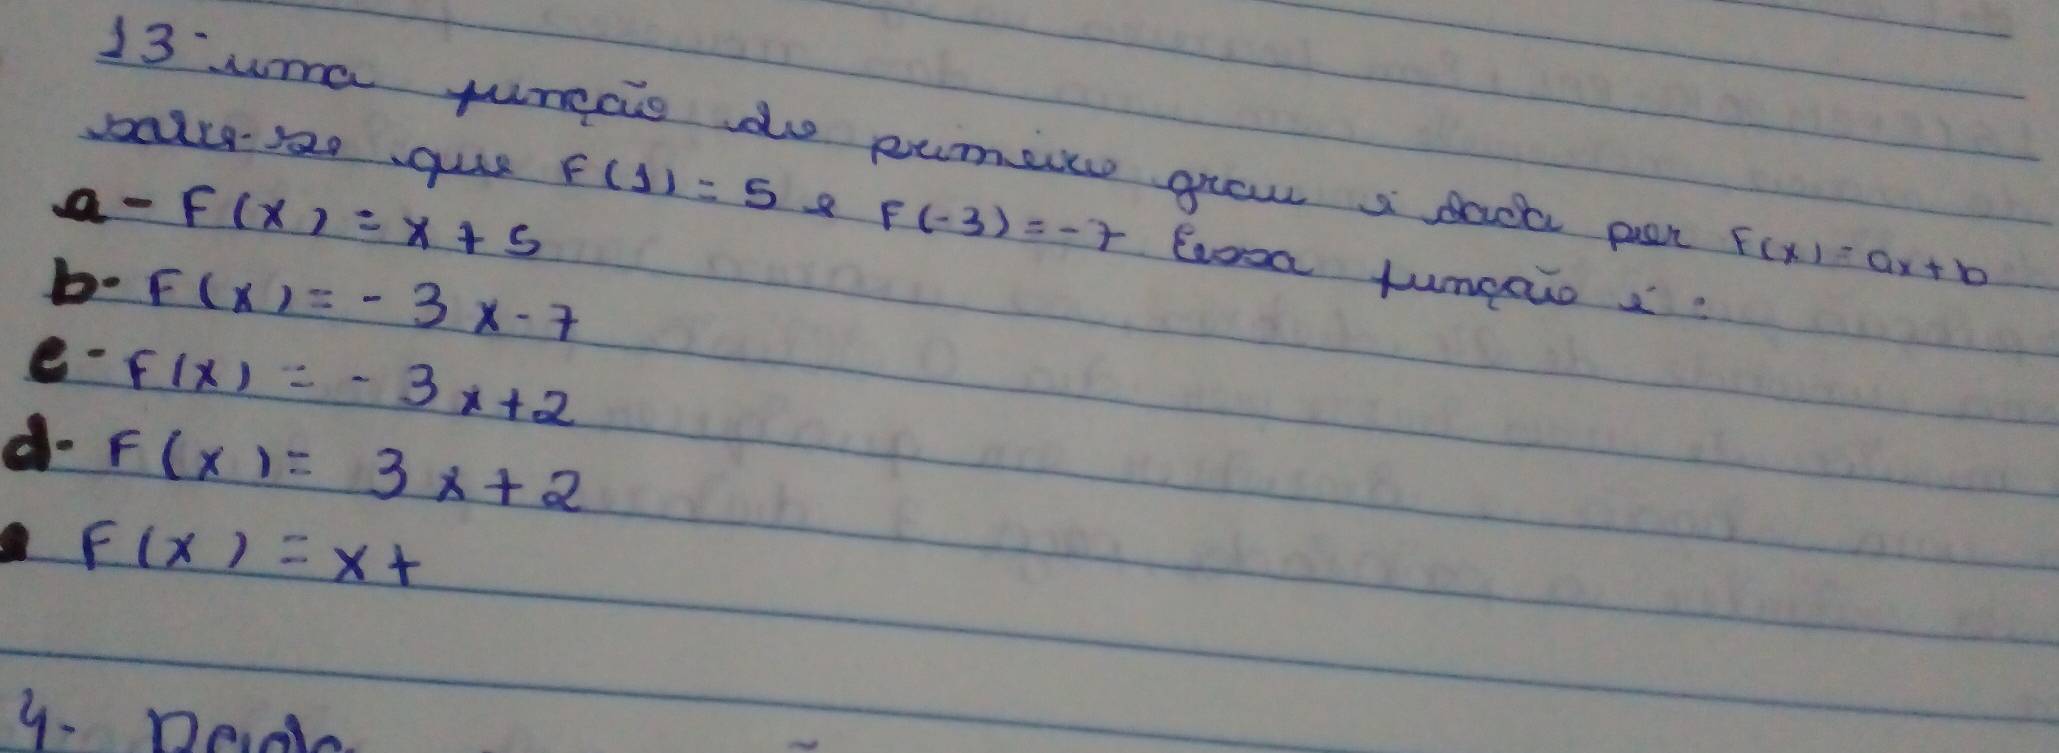 13- uma função do primeiro grau é dada por F(x) = ax + b
sabe-se que F(1) = 5 e F(-3) = -7 Essa função é :
a - F(x) = x + 5
b- F(x) = - 3x - 7
c - F(x) = - 3x + 2
d- F(x) = 3x + 2
F(x) = x +
4- Dada